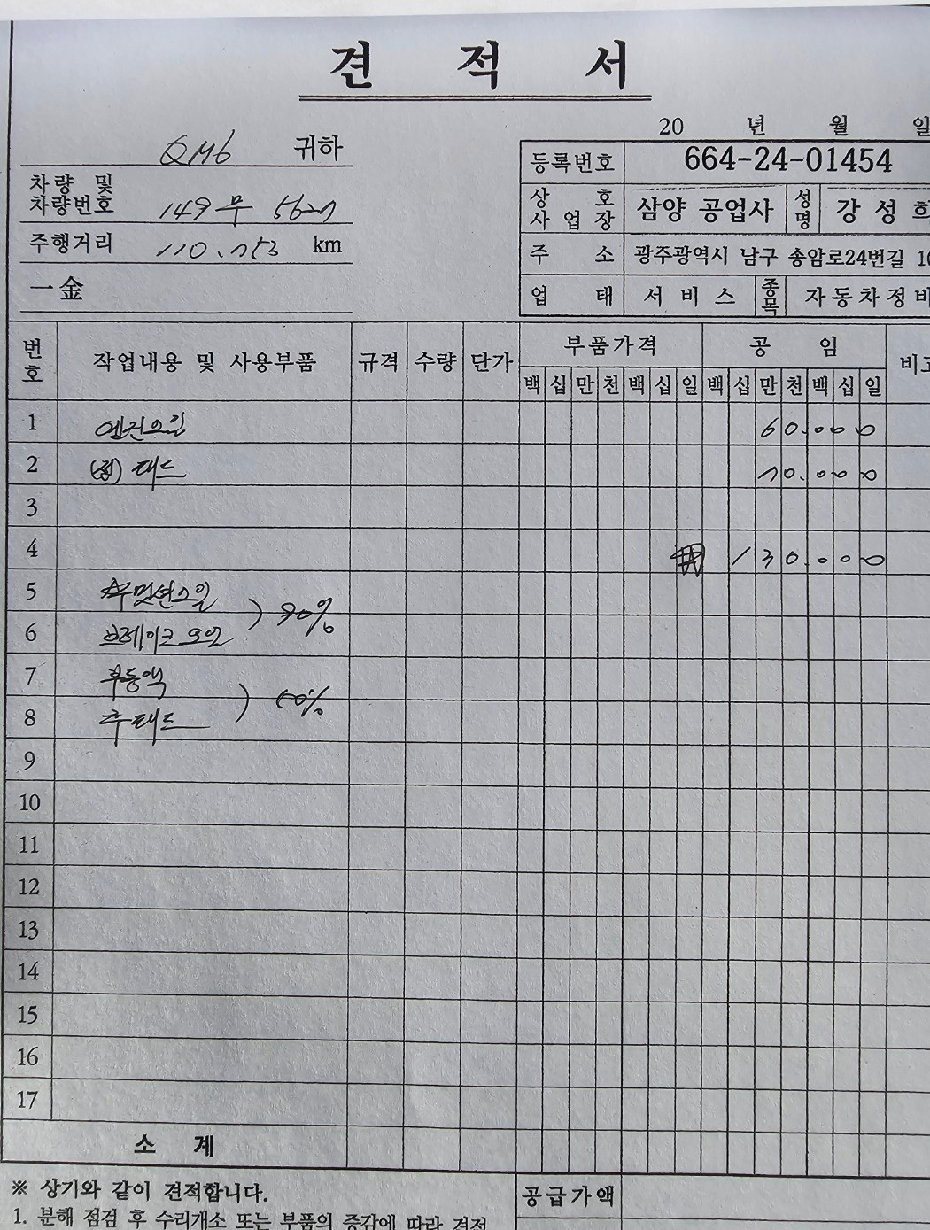 견 적 서
20 년 월 일
QM6 귀하
차량 및
차량번호 149무
주행거리 km
一金
등록번호 664-24-01454
상 호
사 업 장 삼양 공업사 성명 강 성 희
주 소 광주광역시 남구 송암로24번길
업 태 서 비 스 종목 자동차정비
번호 작업내용 및 사용부품 규격 수량 단가 부품가격 공 임 비고
백 십 만 천 백 십 일 백 십 만 천 백 십 일
1 엔진오일 60.000
2 패드 70.000
3
4 130.000
5 90%
6 브레이크오일
7 부동액 60%
8 후패드
9
10
11
12
13
14
15
16
17
소 계
※ 상기와 같이 견적합니다.
공급가액
1. 분해 점검 후 수리개소 또는 부품의 증감에 따라 견적